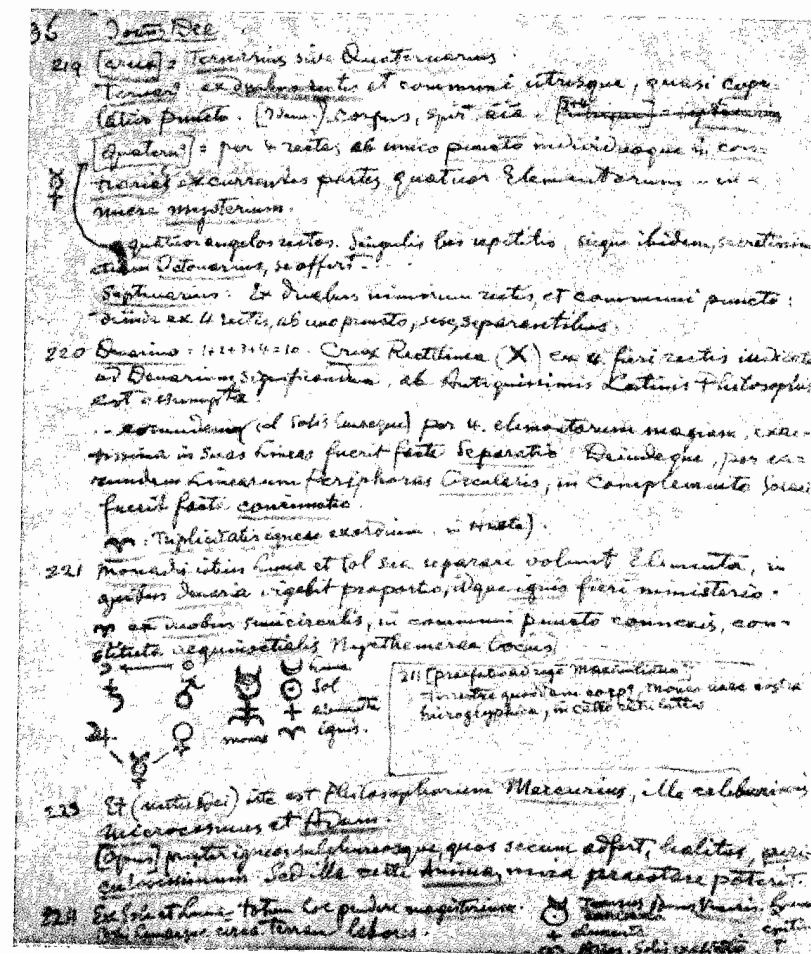 36 Joan. Dee
219 [crux] = Ternarius sive Quaternarius.
Ternar: ex duabus rectis et communi utrisque, quasi copu-
lativo puncto. [Idem:] corpus, spir. aīa.
[Quatern:] = per 4 rectas ab unico puncto individuoque in con-
trarias excurrentes partes quatuor Elementorum in-
nuere mysterium.
quatuor angelos rectos. Singulis bis repetitis, sicque ibidem, secretissime
etiam Octonarius, se offert.
Septenarius: Ex duabus nimirum rectis, et communi puncto:
deinde ex 4 rectis, ab uno puncto, sese separantibus.
220 Denarius: 1+2+3+4=10. Crux Rectilinea (X) ex 4 fieri rectis
ad Denarium significandum, ab Antiquissimis Latinis Philosophis
est assumpta
... eorumdemq (et Solis Lunaeque) per 4. elementorum magiam, exac-
tissima in suas Lineas fuerit facta Separatio. Deindeque, per ea-
rumdem Linearum Peripherias Circularis, in Complemento Solari
fuerit facta coniunctio.
♈. Triplicitatis igneae exordium.
221 Monadis istius Luna et Sol sua separari volunt Elementa, in
quibus Denaria vigebit proportio, idque ignis fieri ministerio.
♈ ex duobus semicirculis, in communi puncto connexis, con-
stituta aequinoctialis Nycthemerae Locus
☽ ♂ luna
♄ ☉ Sol
♃ ♀ + elementa
☿ monas ♈ ignis.
211 [praefatio ad rege Maximiliano]
terrestre quoddam corp9, monas
hieroglyphica, in
223 Et (nutu Dei) iste est Philosophorum Mercurius, ille celeberrimus
microcosmus et Adam.
[Opus] propter igneos sulphureosque, quos secum adfert, halitus, peri-
culosissimum. Sed illa certe mira praestare poterit.
224 Ex Sole et Luna totum hoc pendere magisterium. ♉ Taurus Domus Veneris.
Solis Lunaeque circa terram labores. + elementa
♈ Aries. Solis exaltatio